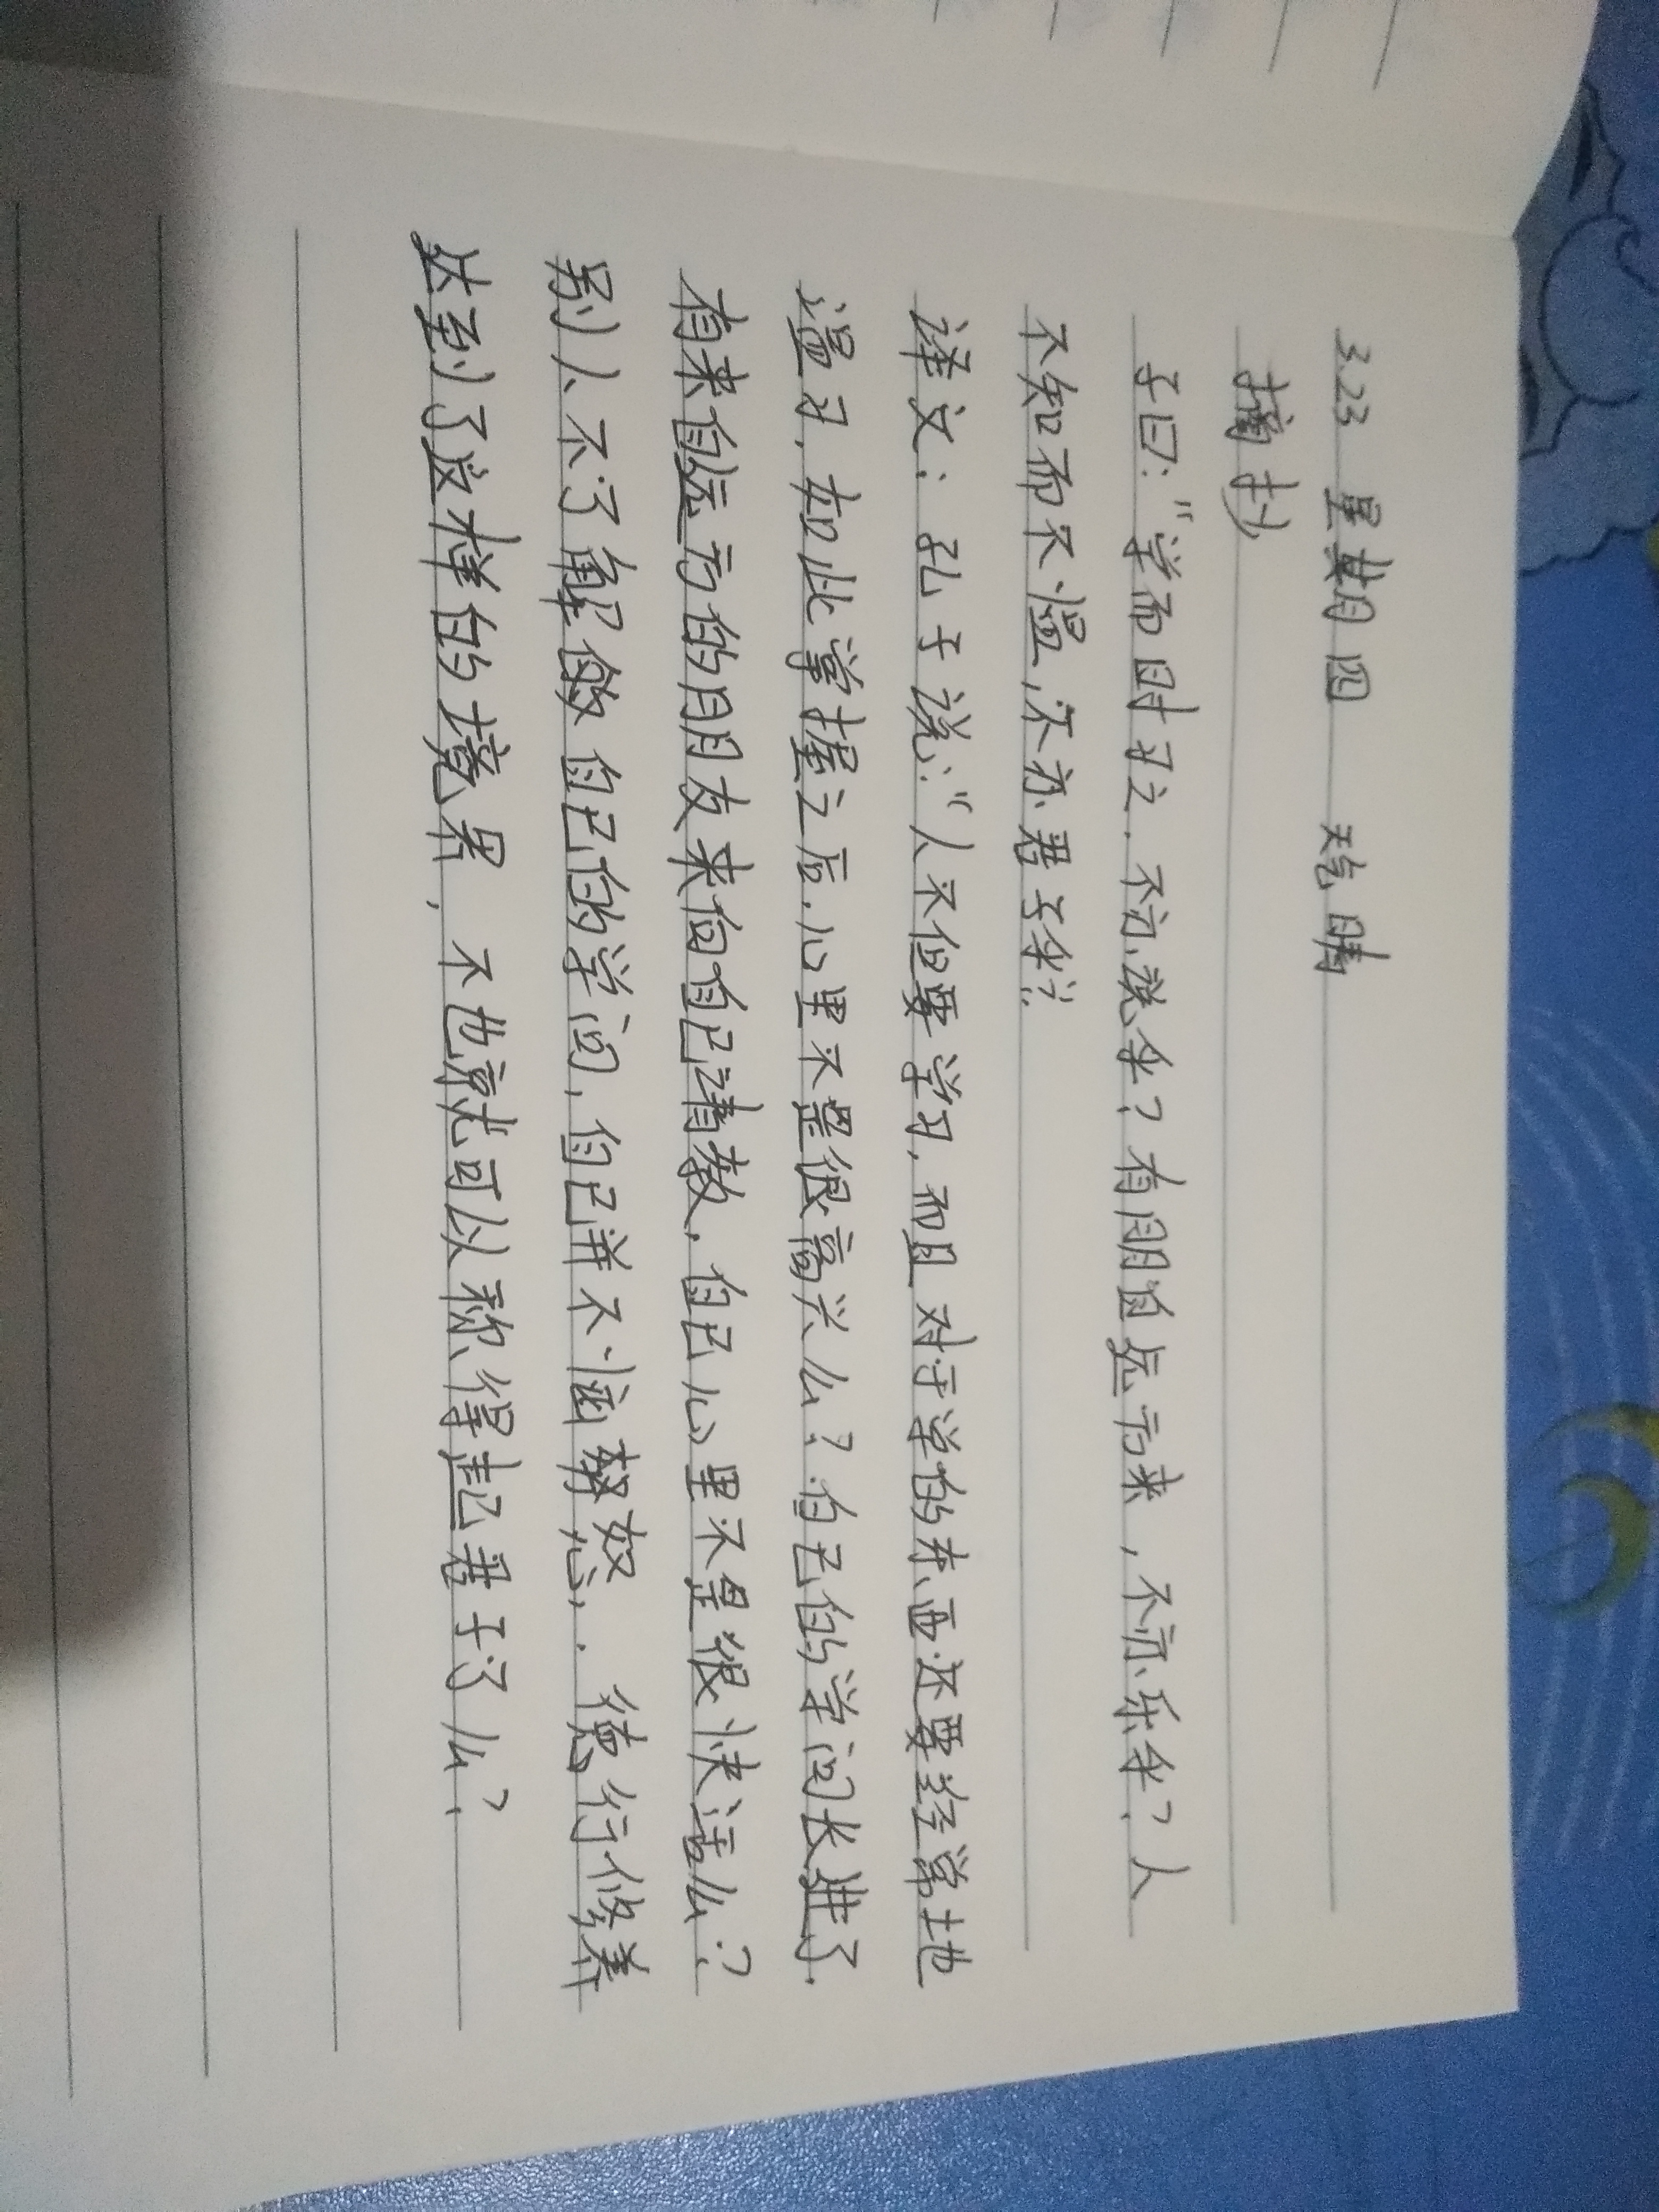 3.23 星期四 天气晴
摘抄
子曰:“学而时习之,不亦说乎?有朋自远方来,不亦乐乎?人
不知而不愠,不亦君子乎?
译文:孔子说:“人不但要学习,而且对于学的东西还要经常地
温习,如此掌握之后,心里不是很高兴么?自己的学问长进了.
有来自远方的朋友来向自己请教,自己心里不是很快活么?
别人不了解做自己的学问,自己并不恼努怒,.德行修养
达到了这样的境界,不也就可以称得起君子了么?